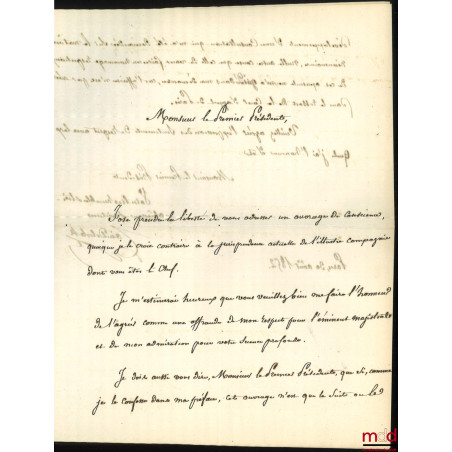 Monsieur le Premier Président,
J'ose prendre la liberté de vous adresser un ouvrage de conscience,
quoique je le croie contraire à la jurisprudence actuelle de l'illustre compagnie
dont vous êtes le Chef.
Je m'estimerai heureux que vous veuillez bien me faire l'honneur
de l'agréer comme une offrande de mon respect pour l'éminent magistrat
et de mon admiration pour votre science profonde.
Je dois aussi vous dire, Monsieur le Premier Président, que si, comme
je le confesse dans ma préface, cet ouvrage n'est que la suite ou le
mdd